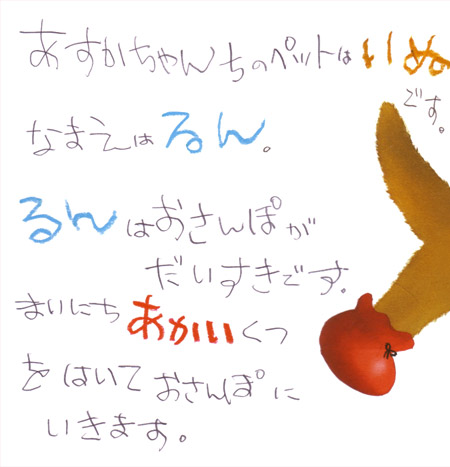 あすかちゃんちのペットはいぬ
です。
なまえはるん。
るんはおさんぽが
だいすきです。
まいにちあかいくつ
をはいておさんぽに
いきます。